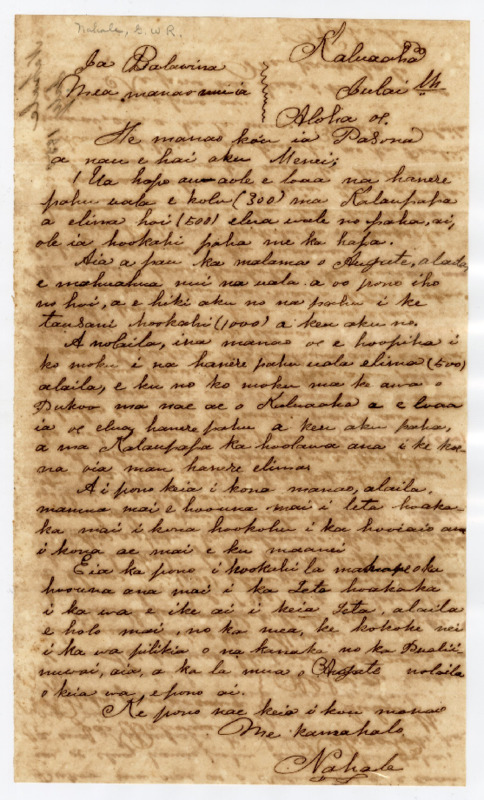 Nahale, G.W.R.
Kaluaaha
Ia Balauina
Mea manao nui ia
Iulai
Aloha oe.
He manao kou ia Pasona
a nau e hai aku Menei;
Ua hapo aole e loaa na hanere
pahu uala e kolu (300) ma Kalaupapa
a elima hoi (500) elua wale no paha, ai,
ole ia hookahi paha me ka hapa.
Aia a pau ka malama o Augate, alaila,
e mahuahua nui na uala a oo pono iho
no hoi, a e hiki aku no na pahu i ke
tausani hookahi (1000) a keu aku no.
A nolaila, ina manao oe e hoopiha i
ko moku i na hanere pahu uala elima (500)
alaila, e ku no ko moku ma ke awa o
Pukoo ma nae ae o Kaluaaha a e loaa
ia oe elua hanere pahu a keu aku paha,
a ma Kalaupapa ka hoolawa ana i ke koe
na oia mau hanere elima
Ai pono keia i kona manao, alaila,
manua mai e hoouna mai i leta hoaka-
ka mai i kona hookohu i ka hooiaio an
i kona ae mai e ku maanei
Eia ka pono i hookahi la mahope oku
hoouna ana mai i ka Leta hoakaka
i ka wa e ike ai i keia Leta, alaila
e holo mai, no ka mea, ke kokoke nei
i ka wa pilikia o na kanaka no ka Pualii
muwai, aia, a ka la mua o Augate nolaila
o keia wa, e pono ai.
Ke pono nae keia i kou manao
Me kamahalo
Nahale